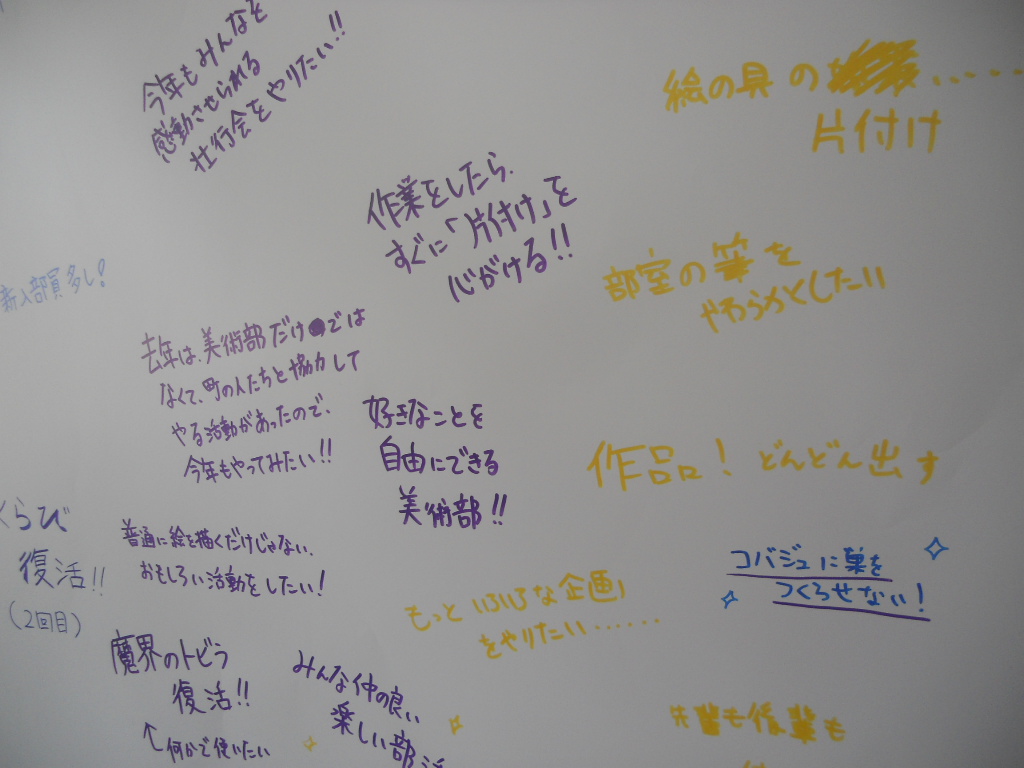 今年もみんなを
感動させられる
壮行会をやりたい!!
絵の具の……
片付け
作業をしたら、
すぐに「片付け」を
心がける!!
部室の筆を
やわらかくしたい
新入部員多し!
去年は、美術部だけでは
なくて、町の人たちと協力して
やる活動があったので、
今年もやってみたい!!
好きなことを
自由にできる
美術部!!
作品!どんどん出す
くらび
復活!!
(2回目)
普通に絵を描くだけじゃない、
おもしろい活動をしたい!
コバジュに巣を
つくらせない!
もっといろいろな企画
をやりたい……
魔界のトビラ
復活!!
↑何かで使いたい
みんな仲の良い
楽しい部活
先輩も後輩も